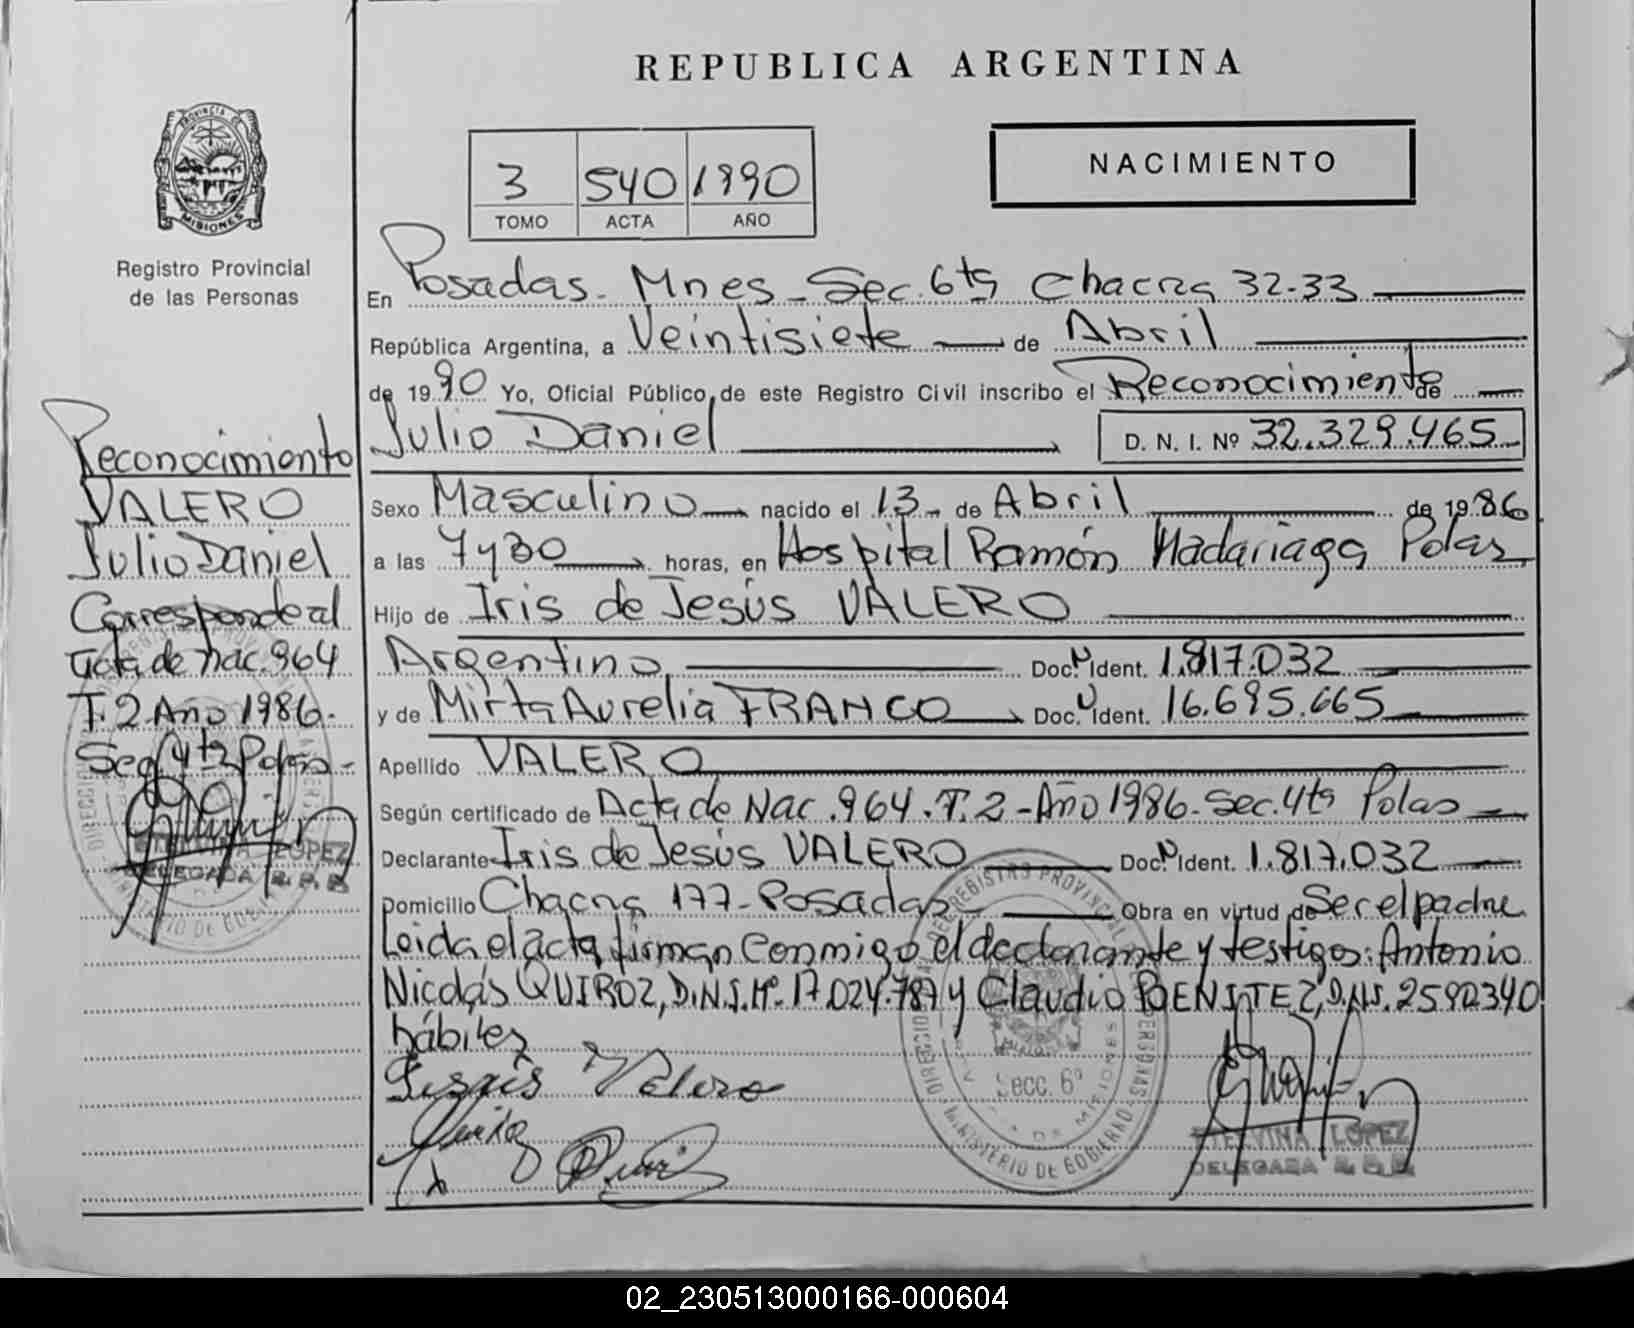 REPUBLICA ARGENTINA
PROVINCIA DE
MISIONES
Registro Provincial
de las Personas
3 540 1990
TOMO ACTA AÑO
NACIMIENTO
En Posadas - Mnes - Sec. 6ta Chacra 32-33
República Argentina, a Veintisiete de Abril
de 1990 Yo, Oficial Público de este Registro Civil inscribo el Reconocimiento de
Julio Daniel D. N. I. Nº 32.329.465
Sexo Masculino nacido el 13 de Abril de 1986
a las 7 y 30 horas, en Hospital Ramón Madariaga Pdas
Hijo de Iris de Jesús VALERO
Argentino Doc. Ident. 1.817.032
y de Mirta Aurelia FRANCO Doc. Ident. 16.695.665
Apellido VALERO
Según certificado de Acta de Nac. 964. T. 2 - Año 1986 - Sec. 4ta Pdas
Declarante Iris de Jesús VALERO Doc. Ident. 1.817.032
Domicilio Chacra 177 - Posadas Obra en virtud de Ser el padre
Leida el acta firman conmigo el declarante y testigos: Antonio
Nicolás QUIROZ, D.N.I. Nº 17.024.787 y Claudio BENITEZ, D.N.I. 2592340
hábiles
Jesús Valero
Secc. 6º
ETELVINA LOPEZ
DELEGADA R. P. P.
Reconocimiento
VALERO
Julio Daniel
Corresponde al
acta de nac. 964
T. 2 Año 1986 -
Sec. 4ta Pdas -
ETELVINA LOPEZ
DELEGADA R. P. P.
02_230513000166-000604